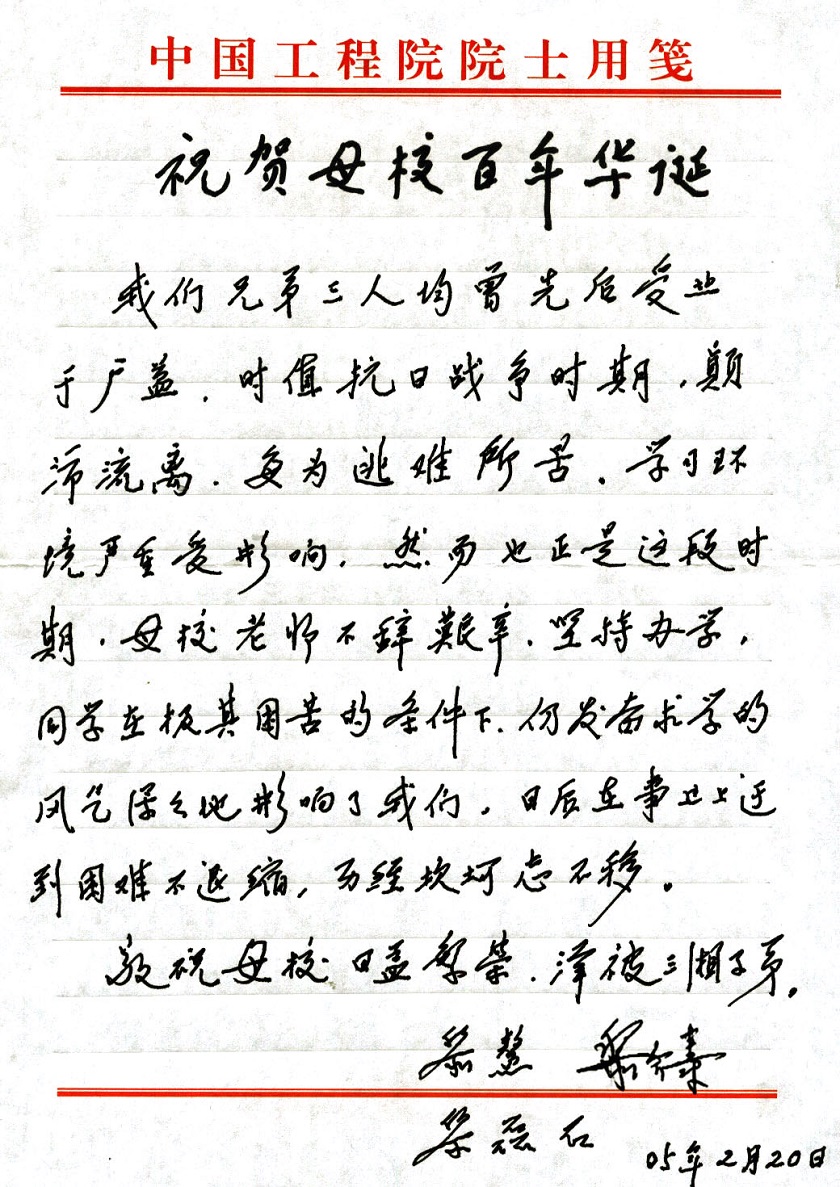 中国工程院院士用笺
祝贺母校百年华诞
我们兄弟三人均曾先后受业
于广益，时值抗日战争时期，颠
沛流离，每为逃难所苦，学习环
境严重受影响，然而也正是这段时
期，母校老师不辞艰辛，坚持办学，
同学在极其困苦的条件下，仍发奋求学的
风气深深地影响了我们，日后在事业上遇
到困难不退缩，历经坎坷志不移。
敬祝母校日益繁荣，泽被三湘子弟。
黎鳌 黎介寿
黎磊石 05年2月20日